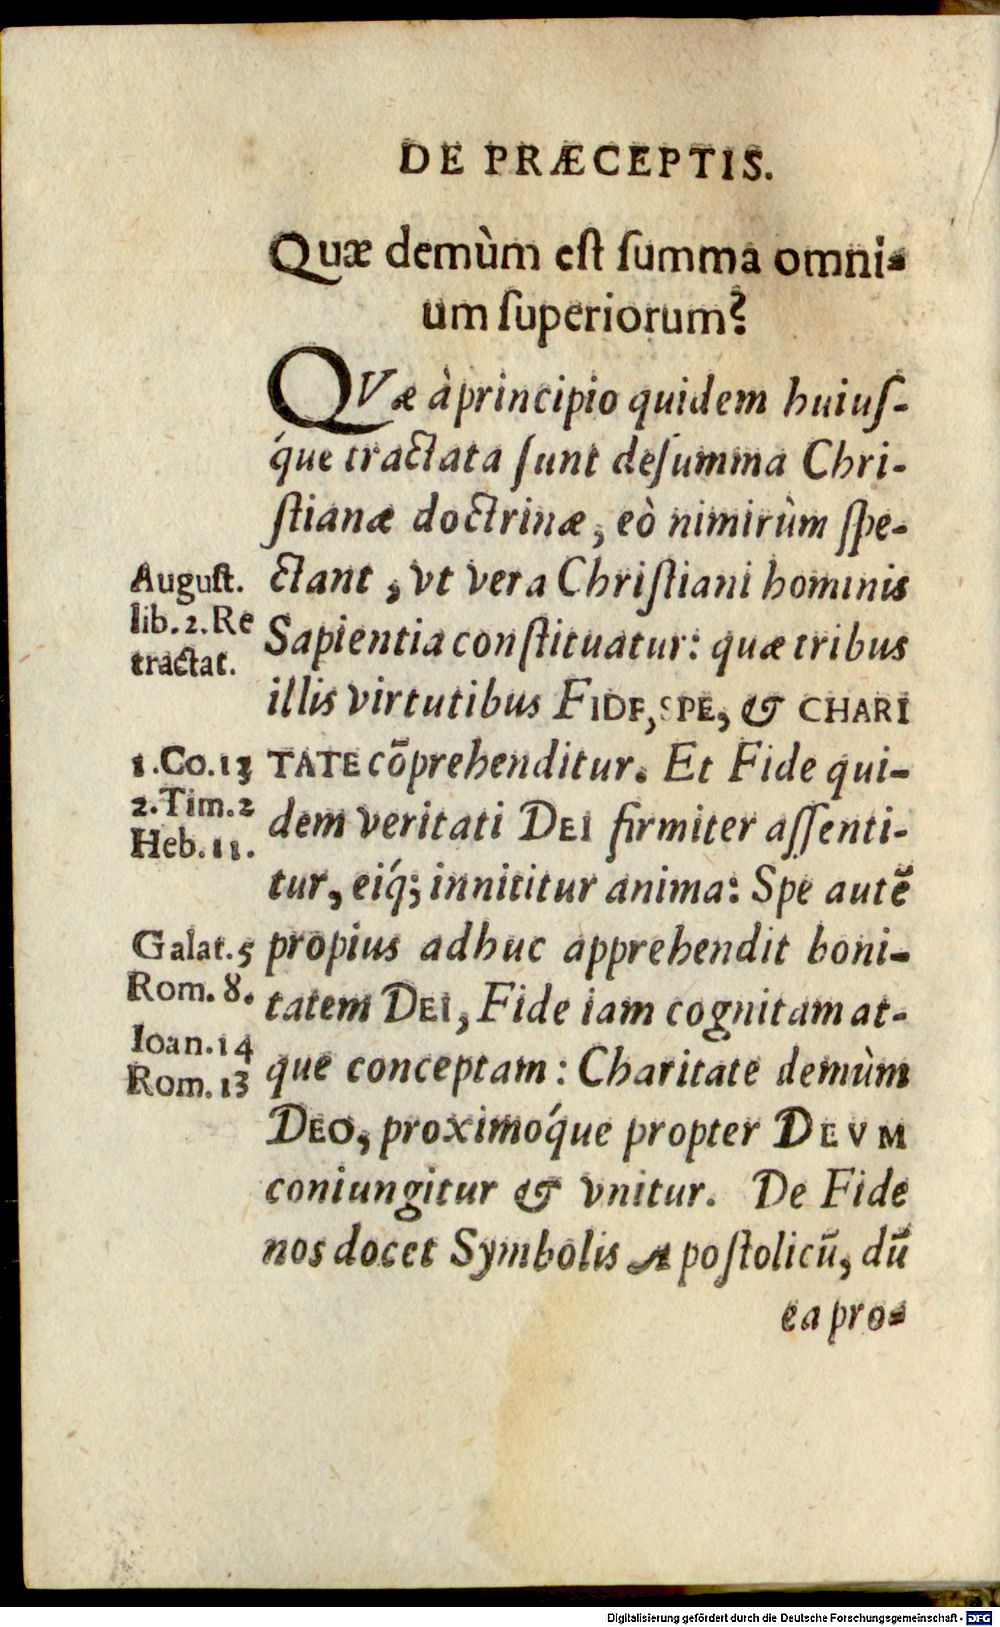 DE PRÆCEPTIS.
Quæ demùm est ſumma omni-
um ſuperiorum?
QVæ à principio quidem huiuſ-
q́ue tractata ſunt de ſumma Chri-
ſtianæ doctrinæ, eò nimirùm ſpe-
ctant, vt vera Chriſtiani hominis
Sapientia conſtituatur: quæ tribus
illis virtutibus FIDE, SPE, & CHARI
TATE cōprehenditur. Et Fide qui-
dem veritati DEI firmiter aſſenti-
tur, eiq́; innititur anima: Spe autē
propius adhuc apprehendit boni-
tatem DEI, Fide iam cognitam at-
que conceptam: Charitate demùm
DEO, proximoq́ue propter DEVM
coniungitur & vnitur. De Fide
nos docet Symbolis Apoſtolicū, dū
ea pro-
Auguſt.
lib. 2. Re
tractat.
1. Co. 13
2. Tim. 2
Heb. 11.
Galat. 5
Rom. 8.
Ioan. 14
Rom. 13
Digitalisierung gefördert durch die Deutsche Forschungsgemeinschaft - DFG